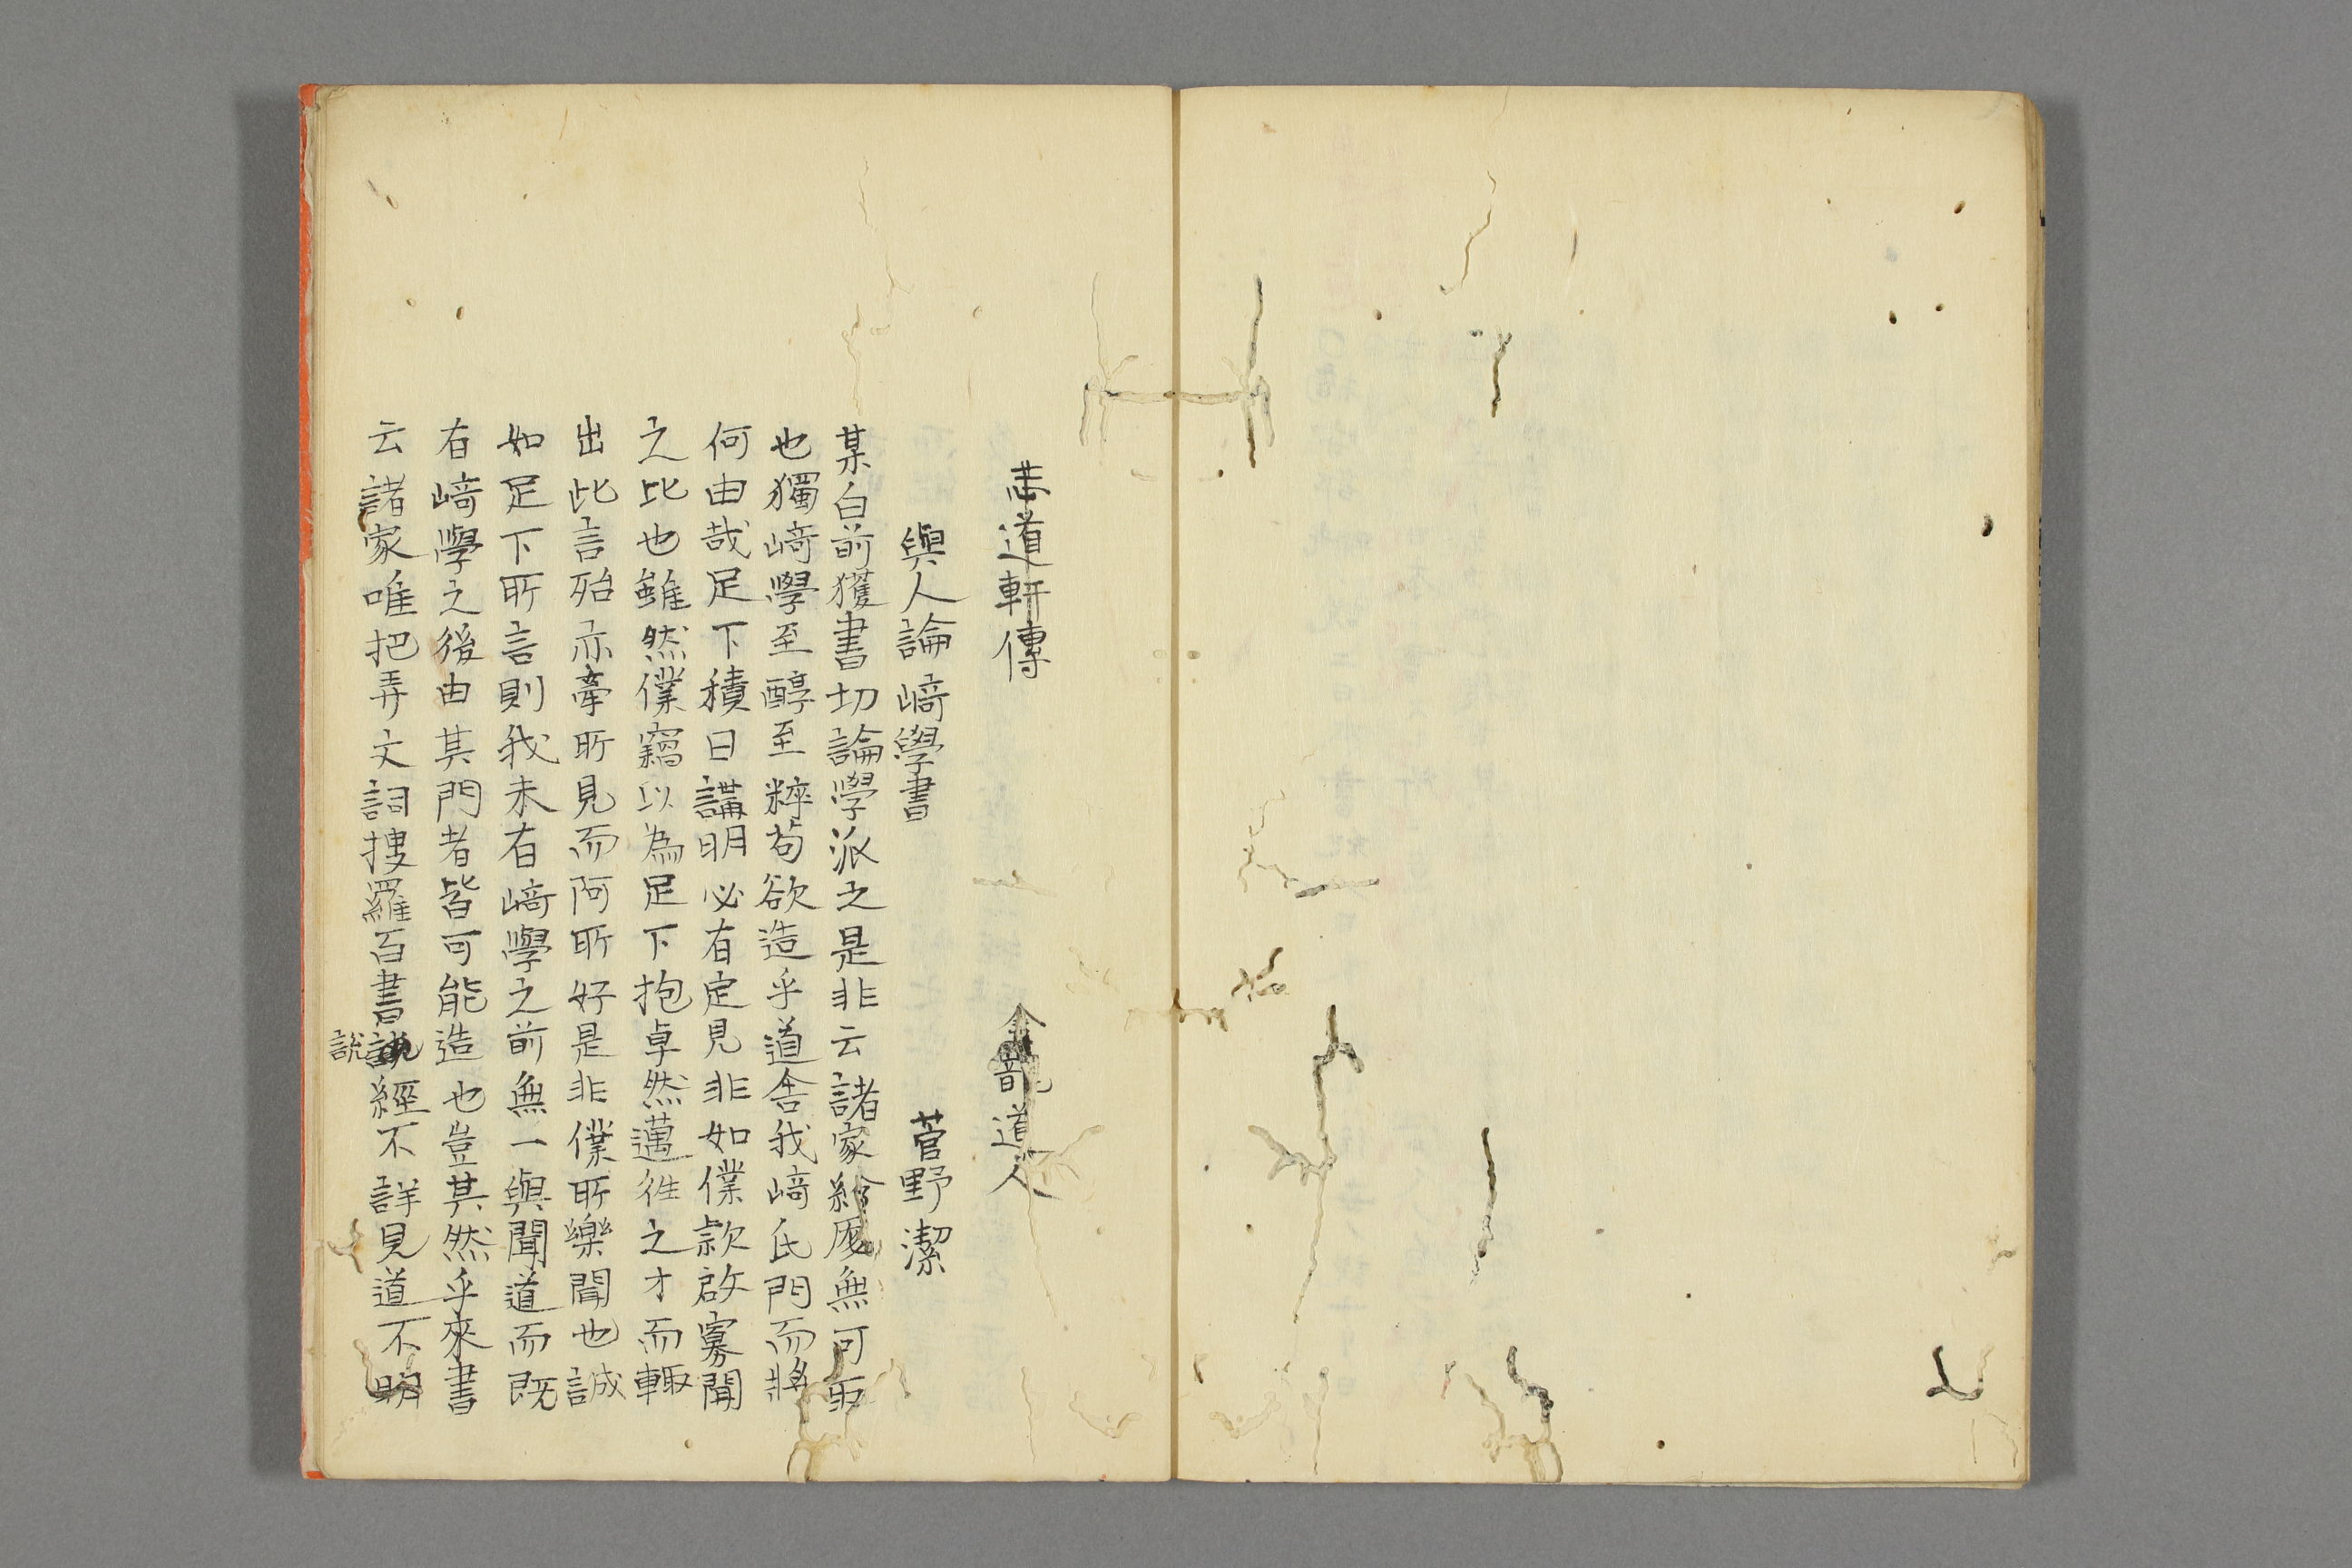 志道軒傳 金龍道人
與人論﨑學書 菅野潔
某白前獲書切論學派之是非云諸家紛厖無可取
也獨﨑學至醇至粹苟欲造乎道舍我﨑氏門而將
何由哉足下積日講明必有定見非如僕款啟寡聞
之比也雖然僕竊以為足下抱卓然邁徃之才而輙
出此言殆亦牽所見而阿所好是非僕所樂聞也誠
如足下所言則我未有﨑學之前無一與聞道而既
有﨑學之後由其門者皆可能造也豈其然乎來書
云諸家唯把弄文詞摟羅百書說經不詳見道不明
說